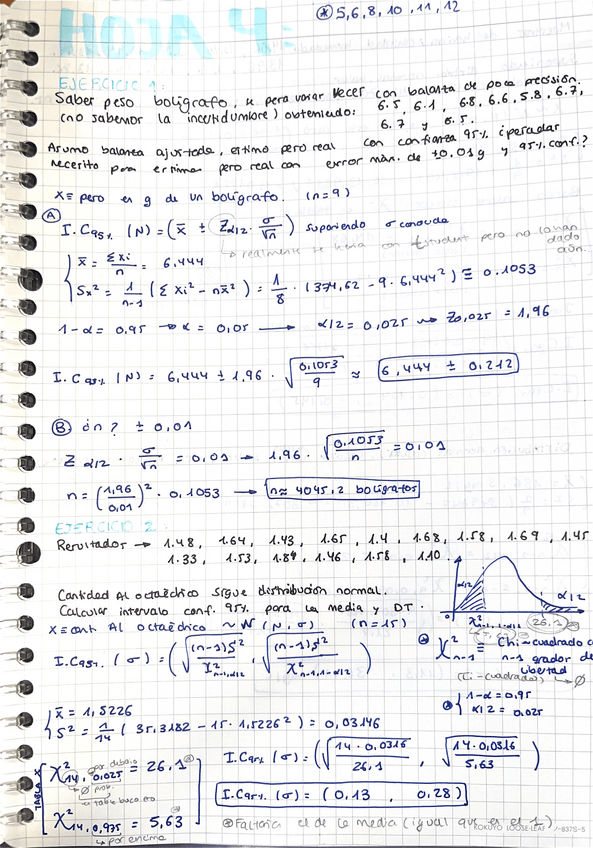 ⊛ 5, 6, 8, 10, 11, 12
EJERCICIO 1:
Saber peso bolígrafo, se pesa varias veces con balanza de poca precisión.
(no sabemos la incertidumbre) obteniendo: 6.5, 6.1, 6.8, 6.6, 5.8, 6.7,
6.7 y 6.5.
Asumo balanza ajustada, estimo peso real con confianza 95% ¿pesadas
necesito para estimar peso real con error máx. de ±0.01g y 95% conf.?
X ≡ peso en g de un bolígrafo. (n=9)
Ⓐ
I.C95% (N) = (x̄ ± Zα/2 · σ/√n) suponiendo σ conocida
↳ realmente se haría con t student pero no lo han dado aún.
x̄ = Σxi/n = 6,444
Sx² = 1/n-1 (Σxi² - nx̄²) = 1/8 · (374,62 - 9·6,444²) ≅ 0.1053
1-α = 0,95 → α = 0,05 → α/2 = 0,025 → Z0,025 = 1,96
I.C95% (N) = 6,444 ± 1,96 · √0,1053/9 ≈ 6,444 ± 0,212
Ⓑ ¿n? ± 0,01
Zα/2 · σ/√n = 0,01 → 1,96 · √0,1053/n = 0,01
n = (1,96/0,01)² · 0,1053 → n≈ 4045,2 bolígrafos
EJERCICIO 2:
Resultados → 1.48, 1.64, 1.43, 1.65, 1.4, 1.68, 1.58, 1.69, 1.45
1.33, 1.53, 1.84, 1.46, 1.58, 1.10.
Cantidad Al octaédrico sigue distribución normal.
Calcular intervalo conf. 95% para la media y DT.
X ≡ cant. Al octaédrico ~ N (N, σ) (n=15)
α/2
α/2
0
χ²n-1,1-α/2
26,1
I.C95% (σ) = (√(n-1)S²/χ²n-1,α/2 , √(n-1)S²/χ²n-1,1-α/2)
⊛ χ²n-1 ≡ Chi-cuadrado c
n-1 grados de
libertad
⊛ 1-α = 0,95
α/2 = 0,025
x̄ = 1,5226
S² = 1/14 (35,3182 - 15·1,5226²) = 0,03146
TABLA X
χ²14, 0,025 = 26.1
por debajo
↳ prob.
χ²14, 0,975 = 5,63
↳ por encima
I.C95% (σ) = (√14·0,0316/26,1 , √14·0,0316/5,63)
I.C95% (σ) = (0,13 , 0,28)
⊛ Faltaría el de la media (igual que en el 1)
KOKUYO LOOSE-LEAF ノ-837S-5